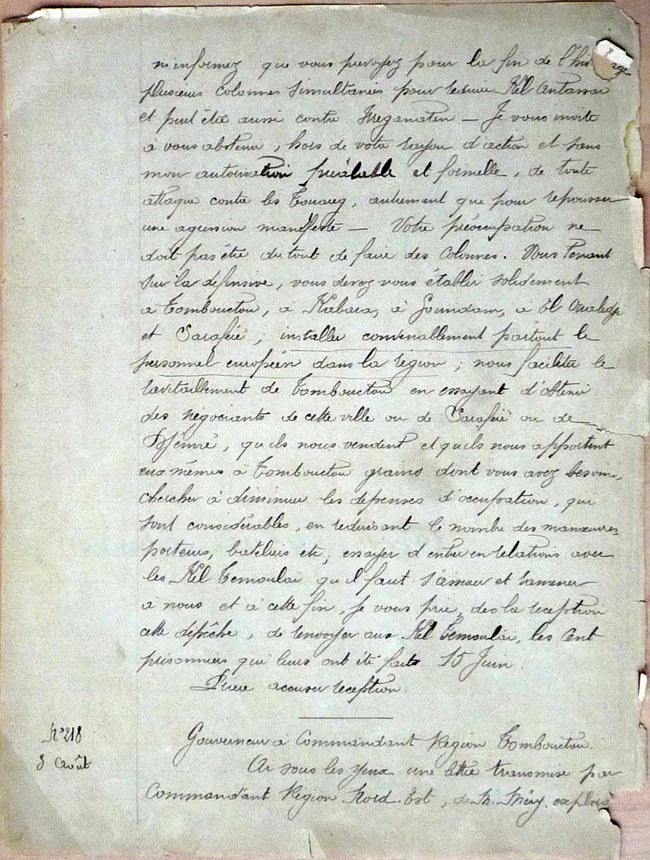 m'informez que vous prévoyez pour la fin de l'hivernage
plusieurs colonnes simultanées pour réduire Kel Antassar
et peut être aussi contre Irreganaten – Je vous invite
à vous abstenir, hors de votre rayon d'action et sans
mon autorisation préalable et formelle, de toute
attaque contre les Touareg, autrement que pour repousser
une agression manifeste – Votre préoccupation ne
doit pas être du tout de faire des colonnes. Vous tenant
sur la défensive, vous devez vous établir solidement
à Tombouctou, à Kabara, à Goundam, à El Oualedji
et Saraféré, installer convenablement partout le
personnel européen dans la région ; nous faciliter le
ravitaillement de Tombouctou en essayant d'obtenir
des négociants de cette ville ou de Saraféré ou de
Djenné, qu'ils nous vendent et qu'ils nous apportent
eux mêmes à Tombouctou grains dont vous avez besoin,
chercher à diminuer les dépenses d'occupation, qui
sont considérables, en réduisant le nombre des manœuvres,
porteurs, bateliers etc, essayer d'entrer en relations avec
les Kel Temoulaï qu'il faut s'amener et ramener
à nous et à cette fin, je vous prie, dès la réception
cette dépêche, de renvoyer aux Kel Temoulaï, les cent
prisonniers qui leurs ont été faits 15 Juin.
Prière accuser réception.
N° 218
3 Août
Gouverneur à Commandant Région Tombouctou.
Ai sous les yeux une lettre transmise par
Commandant Région Nord-Est, de M. Méry, explor